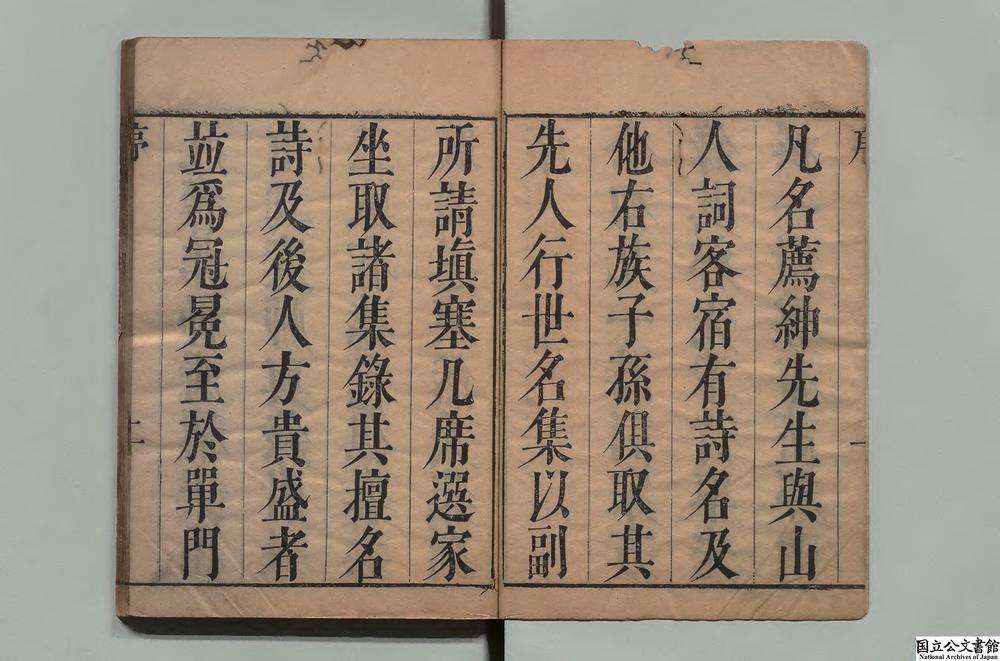 凡名薦紳先生與山
人詞客宿有詩名及
他右族子孫俱取其
先人行世名集以副
所請填塞几席選家
坐取諸集錄其擅名
詩及後人方貴盛者
並爲冠冕至於單門
国立公文書館
National Archives of Japan